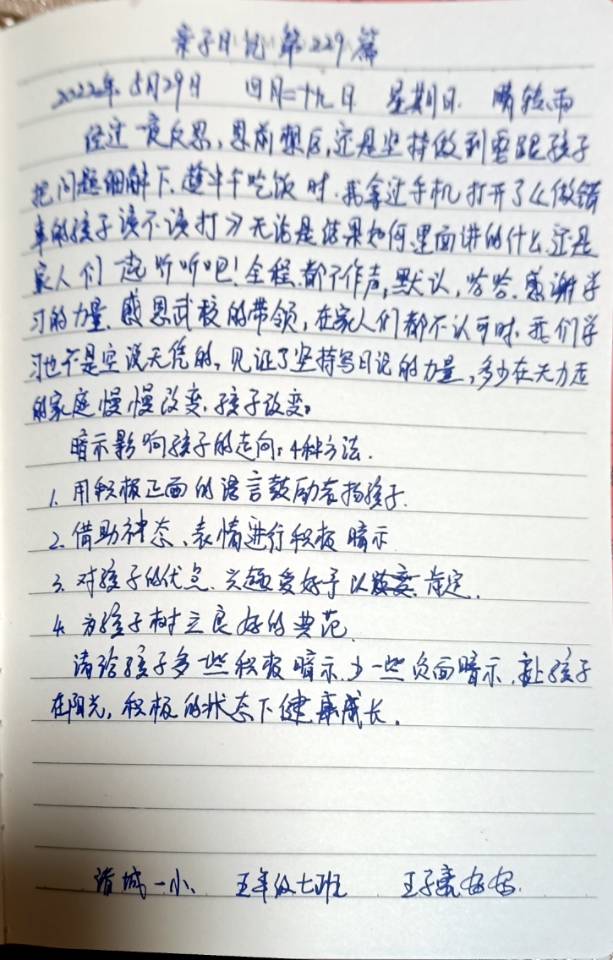 亲子日记第229篇
2022年5月29日 四月二十九日 星期日 晴转雨
经过一夜反思,思前想后,还是坚持做到要跟孩子
把问题细解下,趁中午吃饭时,我拿过手机打开了《做错
事的孩子该不该打》无论是结果如何里面讲的什么,还是
家人们一起听听吧!全程都不作声,默认,哈哈.感谢学
习的力量,感恩武校的带领,在家人们都不认可时,我们学
习也不是空说无凭的,见证了坚持写日记的力量,多少在无力
的家庭慢慢改变.孩子改变。
暗示影响孩子的走向:4种方法.
1. 用积极正面的语言鼓励表扬孩子.
2. 借助神态、表情进行积极暗示
3. 对孩子的优点、兴趣爱好予以 肯定.
4. 为孩子树立良好的典范.
请给孩子多一些积极暗示,少一些负面暗示,让孩子
在阳光,积极的状态下健康成长.
诸城一小、 五年级七班 王子 妈妈.